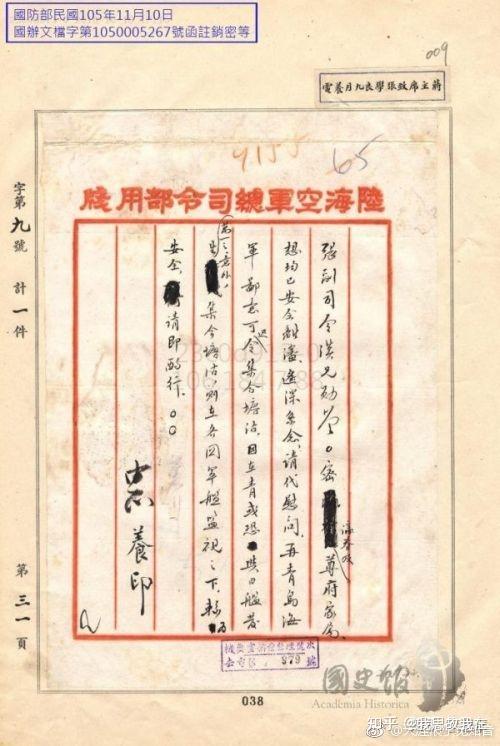 國防部民國105年11月10日
國辦文檔字第1050005267號函註銷密等
009
電養月九良學張致席主蔣
9155
65
牋用部令司總軍空海陸
張副司令漢兄勛鑒○密 尊府家屬
想均已安全離瀋遥深系念請代慰問再青島海
軍鄙意可迅令集合塘沽因在青或恐與日艦發
生 之意外集合塘沽則在各國軍艦監視之下較為
安全 請即酌行○○
中正養印
字第九號 計一件
第三一頁
979
國史館
Academia Historica
038
知乎